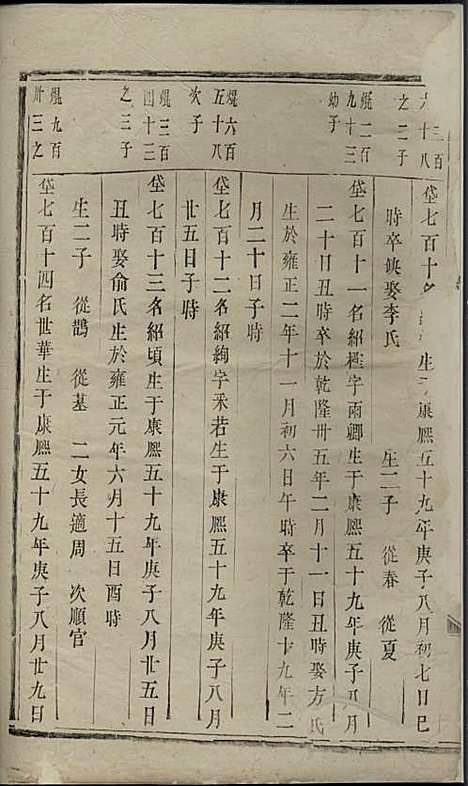 三百
六十八
之二子
垡七百十名 生 康熙五十九年庚子八月初七日巳
時卒缺娶李氏 生二子 從春 從夏
焜二百
九十三
幼子
垡七百十一名紹極字雨卿生于康熙五十九年庚子八月
二十日丑時卒於乾隆卅五年二月十一日丑時娶方氏
生於雍正二年十一月初六日午時卒于乾隆十九年二
月二十日子時
焜六百
五十八
次子
垡七百十二名紹絢字釆若生于康熙五十九年庚子八月
廿五日子時
焜三百
四十三
之三子
垡七百十三名紹頃生于康熙五十九年庚子八月廿五日
丑時娶俞氏生於雍正元年六月十五日酉時
生二子 從鵲 從墓 二女長適周 次順官
焜九百
卅三之
垡七百十四名世華生于康熙五十九年庚子八月廿九日